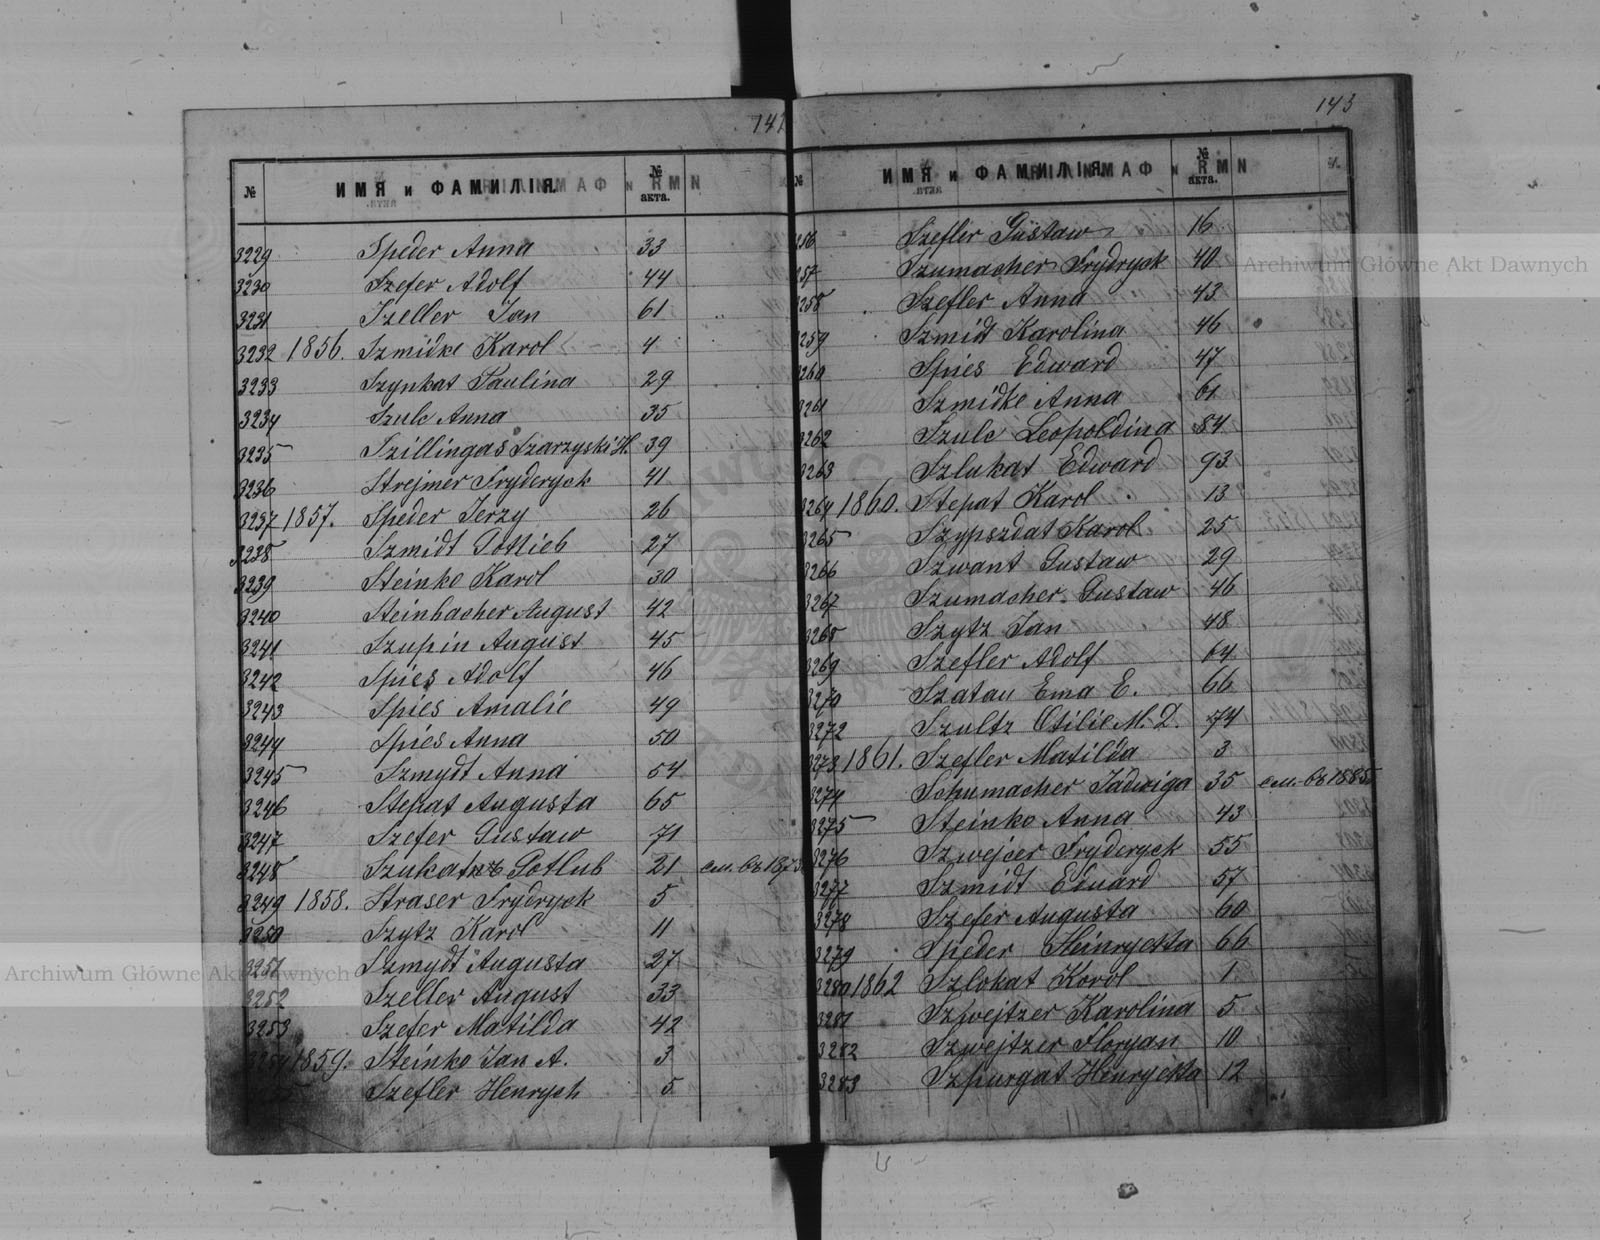 142
№ ИМЯ и ФАМИЛІЯ № акта.
3229 Speder Anna 33
3230 Szefer Adolf 44
3231 Szeller Jan 61
3232 1856. Szmidke Karol 4
3233 Szynkat Paulina 29
3234 Szulc Anna 35
3235 Szillingas Szarzyski H. 39
3236 Strejmer Fryderyck 41
3237 1857. Speder Jerzy 26
3238 Szmidt Gottlieb 27
3239 Steinko Karol 30
3240 Steinbacher August 42
3241 Szupin August 45
3242 Spies Adolf 46
3243 Spies Amalie 49
3244 Spies Anna 50
3245 Szmydt Anna 54
3246 Stepat Augusta 65
3247 Szefer Gustaw 71
3248 Gotlub 21 см. въ 1873
3249 1858. Straser Frydryck 5
3250 Szytz Karol 11
3251 Szmydt Augusta 27
3252 Szeller August 33
3253 Szefer Matilda 42
3254 1859. Steinko Jan A. 3
Szefler Henrych 5
143
№ ИМЯ и ФАМИЛІЯ № акта.
256 Szefler Gustaw 16
257 Szumacher Frydryck 40
258 Szefler Anna 43
259 Szmidt Karolina 46
3260 Spies Edward 47
3261 Szmidke Anna 61
3262 Szulc Leopoldina 84
3263 Szlukat Edward 93
3264 1860. Stepat Karol 13
3265 Szypszdat Karol 25
3266 Szwant Gustaw 29
3267 Szumacher Gustaw 46
3268 Szytz Jan 48
3269 Szefler Adolf 64
3270 Szatau Ema E. 66
3272 Szultz Otilie M. D. 74
3273 1861. Szefler Matilda 3
3274 Schumacher Jadwiga 35 см. въ 1885
3275 Steinko Anna 43
3276 Szwejcer Fryderyck 55
3277 Szmidt Eduard 57
3278 Szefer Augusta 60
3279 Speder Heinryetta 66
3280 1862 Szlokat Korol 1
3281 Szwejtzer Karolina 5
3282 Szwejtzer Floryan 10
3283 Szpurgat Henryetta 12
Archiwum Główne Akt Dawnych
Archiwum Główne Akt Dawnych